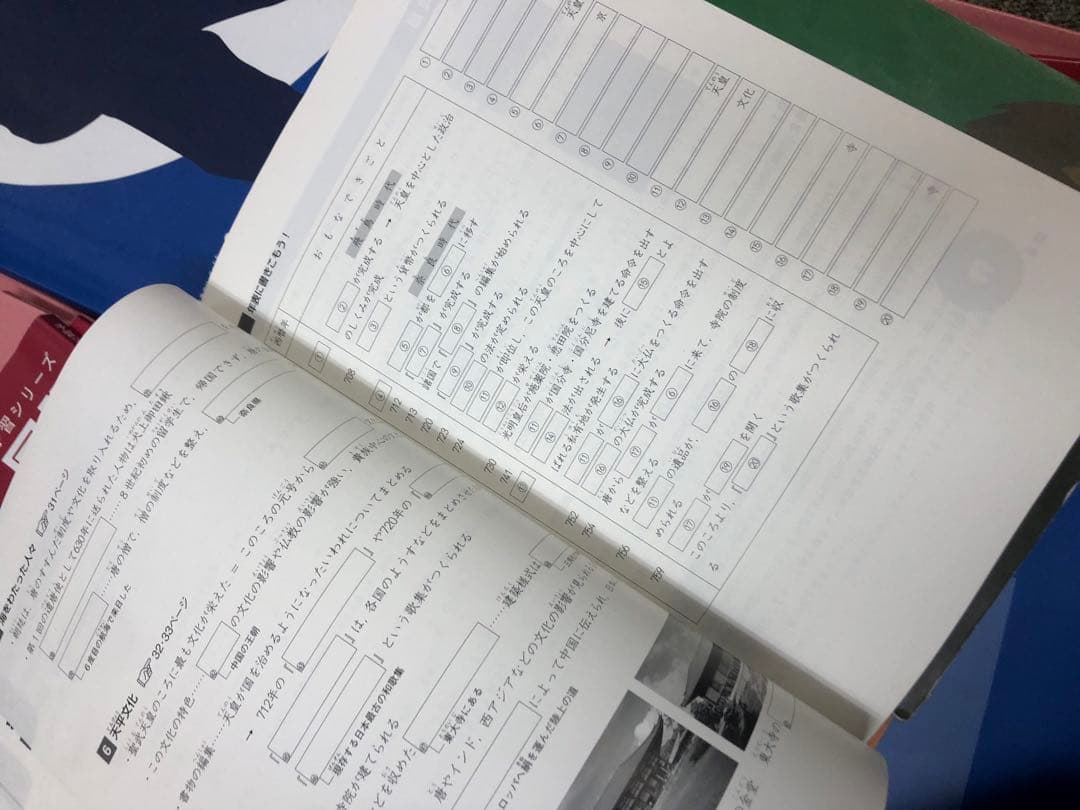 習シリーズ
海をわたった人々 31ページ
制度や文化を取り入れるため、
第1回の遣唐使として630年に送られた人物は犬上御田鍬
8世紀初めの留学生で、帰国できず、
6度目の航海で来日した
……唐の僧で、僧の制度などを整え、
奈良県
6 天平文化 32・33ページ
・聖武天皇のころに最も文化が栄えた=このころの元号から
・この文化の特色……
の文化の影響や仏教の影響が強い、貴族中心の
中国の王朝
・書物の編集……天皇が国を治めるようになったいわれについてまとめる
→ 712年の『 』や720年の『
『 』は、各国のようすなどをまとめさせ
『 』という歌集がつくられる
現存する日本最古の和歌集
寺院が建てられる
などを収めた
……建築様式は
東大寺にある
唐やインド、西アジアなどの文化の影響が見られ
によって中国に伝えられ、
ロッパへ絹を運んだ陸上の道
東大寺の
金堂
年表に書きこもう!
西暦年
おもなできごと
飛鳥時代
①
②が完成する → 天皇を中心とした政治
のしくみが完成
708 ③という貨幣がつくられる
奈良時代
④ ⑤が都を⑥に移す
712 『⑦』が完成する
713 諸国で『⑧』の編集が始められる
720 『⑨』が完成する
723 ⑩の法が定められる
724 ⑪が即位し、この天皇のころを中心にして
⑫が栄える
730 光明皇后が施薬院・悲田院をつくる
741 ⑪が国分寺・国分尼寺を建てる命令を出す
⑭法が出される → 後に⑮とよ
ばれる私有地が発生する
⑪が⑯に大仏をつくる命令を出す
752 ⑯の大仏が完成する
754 唐から⑰が⑥に来て、寺院の制度
などを整える
756 ⑪の遺品が、⑯の⑱に収
められる
759 ⑰が⑲を開く
このころより、『⑳』という歌集がつくられ
る
①
②
③
④
⑤ 天皇
⑥ 京
⑦
⑧
⑨
⑩
⑪ 天皇
⑫ 文化
⑬
⑭
⑮
⑯ 寺
⑰
⑱
⑲
⑳